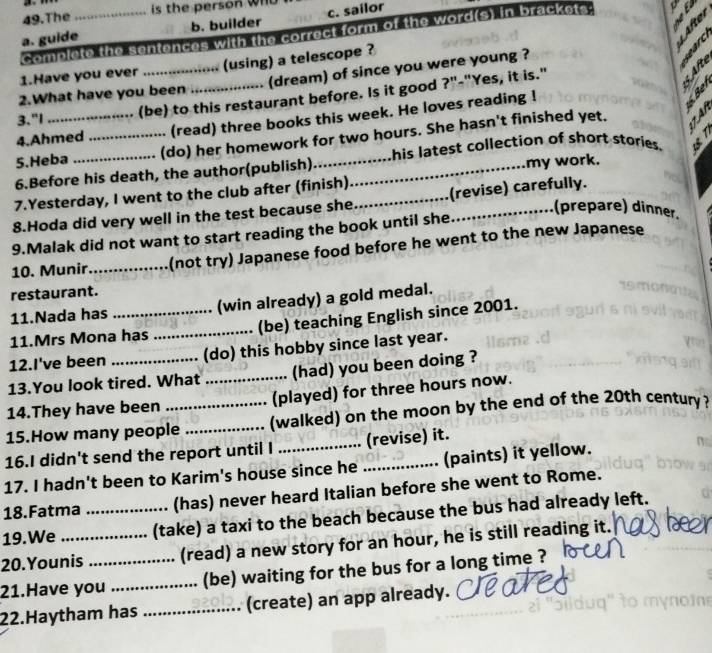 49.The .................. is the person who
a. guide b. builder c. sailor
Complete the sentences with the correct form of the word(s) in brackets:
1.Have you ever .................. (using) a telescope ?
2.What have you been .................. (dream) of since you were young ?
3."I .................. (be) to this restaurant before. Is it good ?"-"Yes, it is."
4.Ahmed .................. (read) three books this week. He loves reading !
5.Heba .................. (do) her homework for two hours. She hasn't finished yet.
6.Before his death, the author(publish)..................his latest collection of short stories.
7.Yesterday, I went to the club after (finish)..................my work.
8.Hoda did very well in the test because she..................(revise) carefully.
9.Malak did not want to start reading the book until she..................(prepare) dinner.
10. Munir..................(not try) Japanese food before he went to the new Japanese
restaurant.
11.Nada has .................. (win already) a gold medal.
11.Mrs Mona has .................. (be) teaching English since 2001.
12.I've been .................. (do) this hobby since last year.
13.You look tired. What .................. (had) you been doing ?
14.They have been .................. (played) for three hours now.
15.How many people .................. (walked) on the moon by the end of the 20th century ?
16.I didn't send the report until I .................. (revise) it.
17. I hadn't been to Karim's house since he .................. (paints) it yellow.
18.Fatma .................. (has) never heard Italian before she went to Rome.
19.We .................. (take) a taxi to the beach because the bus had already left.
20.Younis .................. (read) a new story for an hour, he is still reading it. has been
21.Have you .................. (be) waiting for the bus for a long time ? been
22.Haytham has .................. (create) an app already. created